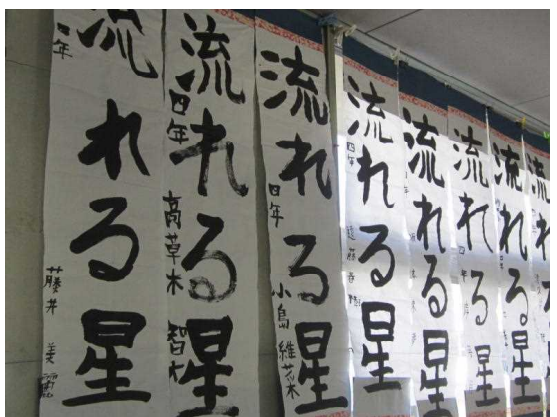 流れる星
年
藤井 美麗
流れる星
四年
高草木 智大
流れる星
四年
小島 維菜
流れる星
四年
遠藤
流れる星
流れる星
四年
流れる星
流れる